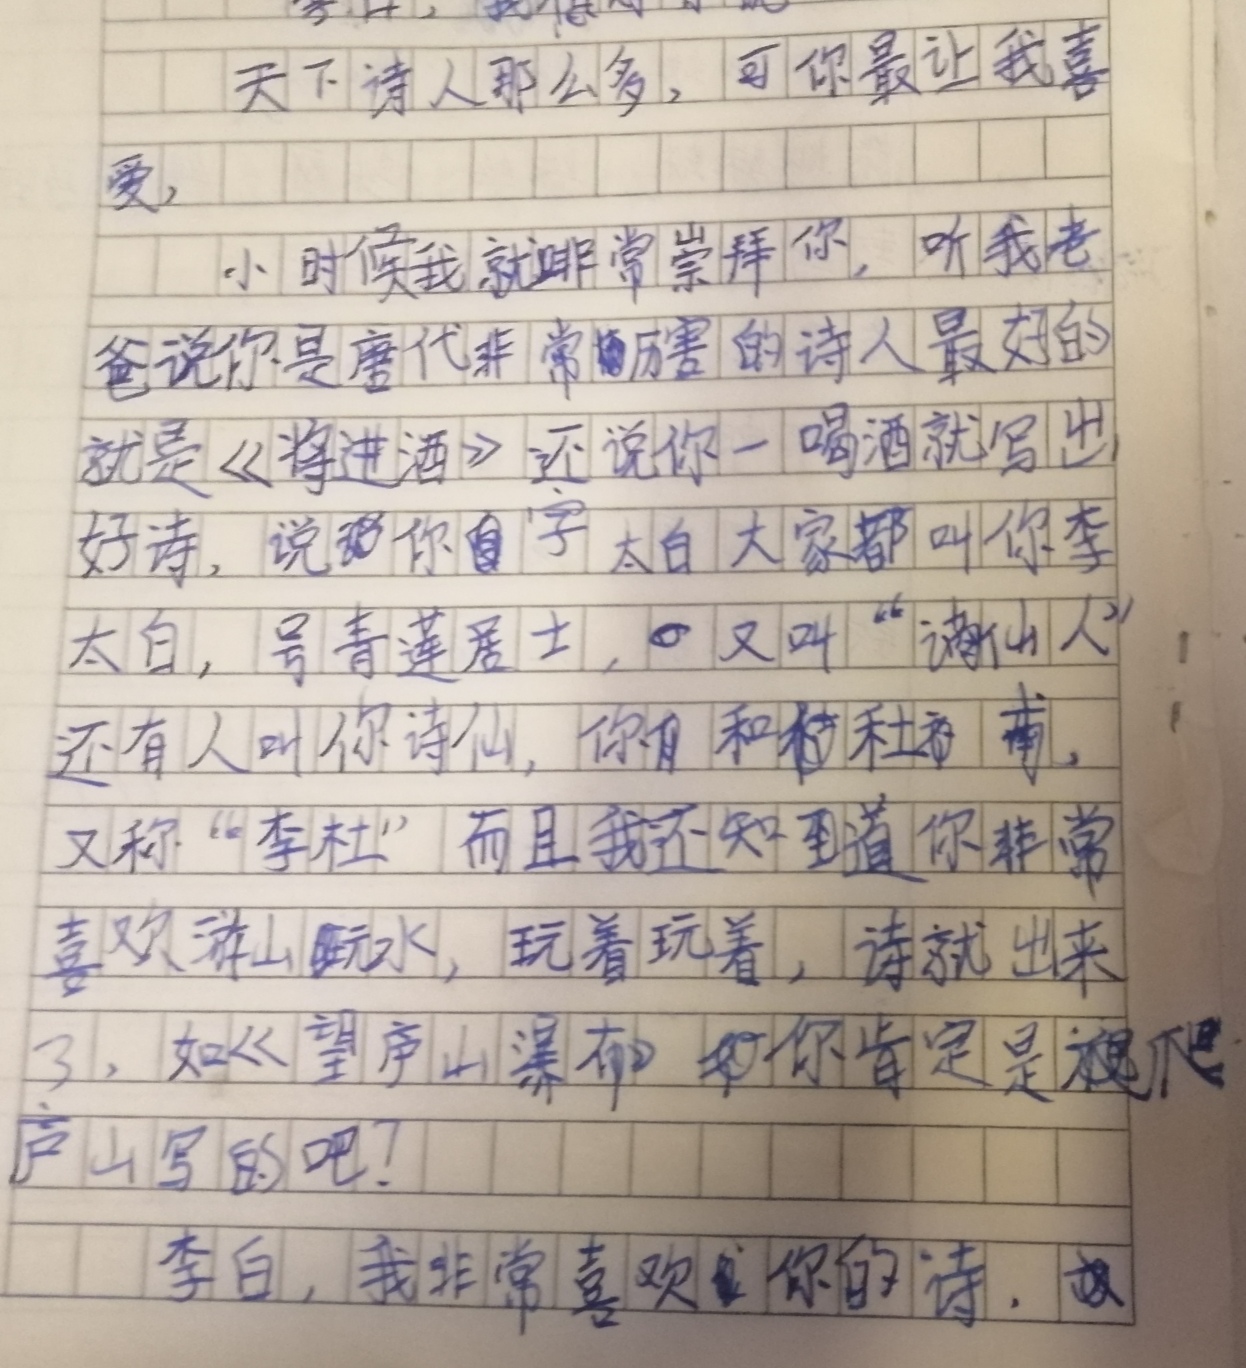 天下诗人那么多,可你最让我喜
爱,
小时候我就非常崇拜你,听我老
爸说你是唐代非常厉害的诗人最好的
就是《将进酒》还说你一喝酒就写出
好诗,说你字太白大家都叫你李
太白,号青莲居士,又叫“谪仙人”
还有人叫你诗仙,你和杜甫,
又称“李杜”而且我还知道你非常
喜欢游山玩水,玩着玩着,诗就出来
了,如《望庐山瀑布》你肯定是爬
庐山写的吧!
李白,我非常喜欢你的诗.